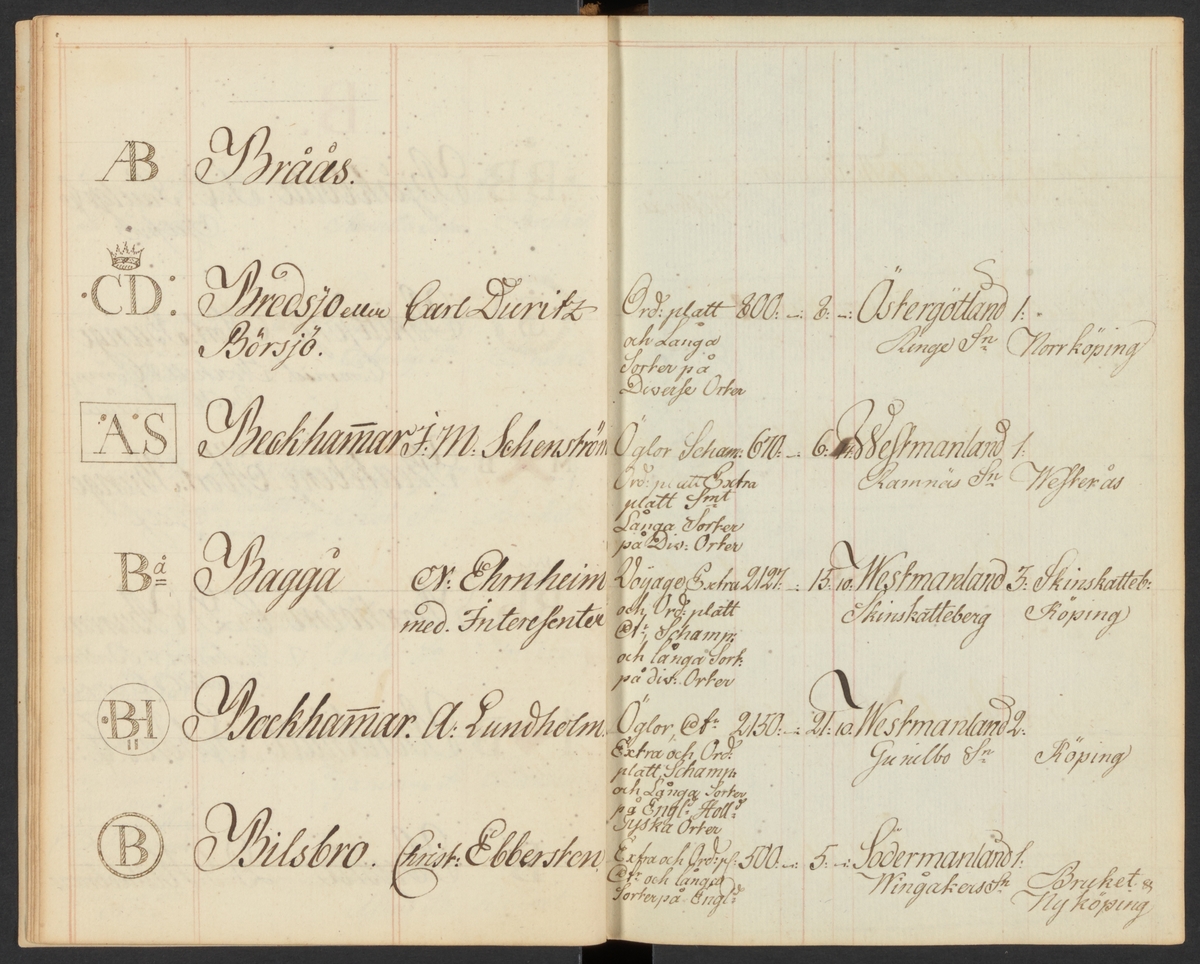 AB Bråås.
CD Bredsjö eller Carl Duritz Ord: platt 800: –: 8: –: Östergötland 1:
Börsjö. och Långa Ringe Sn Norrköping
Sorter på
Diverse Orter
ÄS Beckham̄ar J: M: Schenström Öglor Scham: 670: –: 6: Westmanland 1:
Ord: platt Extra Ramnäs Sn Westerås
platt Smt
Långa Sorter
på Div: Orter
Bå Baggå N: Ehrnheim Voyage, Extra 2127: – 15: 10: Westmanland 3: Skinskatteb:
med. Interessenter och Ord: platt Skinskatteberg Köping
Ct: Schamp:
och långa Sort:
på div: Orter
BH Bockham̄ar. A: Lundholm. Öglor, Ct: 2150: –: 21: 10: Westmanland 2:
Extra och Ord: Gunilbo Sn Köping
platt, Schamp:
och Långa Sorter
på Engl: Holl:
Tyska Orter
B Bilsbro. Christ: Ebbersten Extra och Ord: pl: 500: –: 5: –: Södermanland 1:
Ct: och långa Wingåkers Sn Bruket &
Sorter på Engl: Nyköping